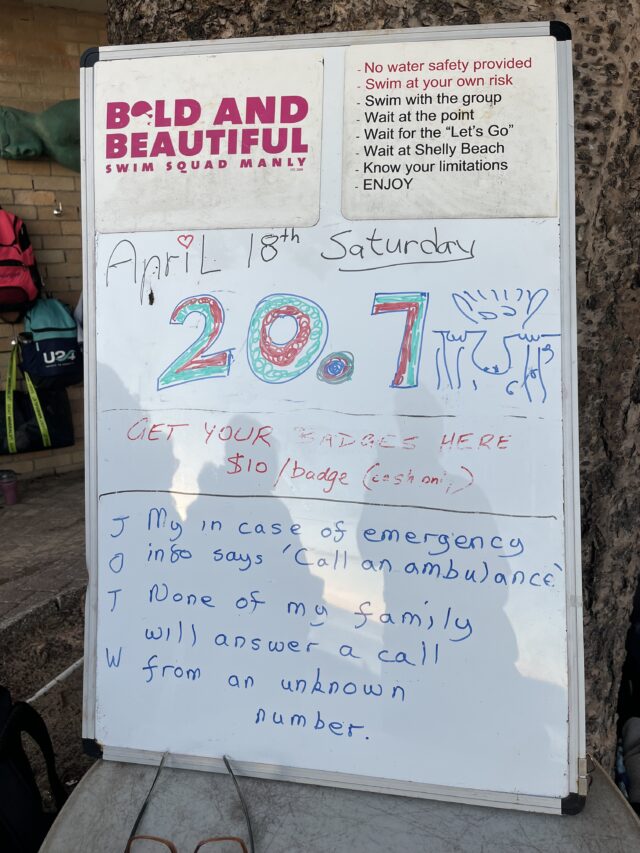 BOLD AND
BEAUTIFUL
SWIM SQUAD MANLY
- No water safety provided
- Swim at your own risk
- Swim with the group
- Wait at the point
- Wait for the “Let's Go”
- Wait at Shelly Beach
- Know your limitations
- ENJOY
April 18th Saturday
20.7
GET YOUR BADGES HERE
$10/badge (cash only)
J My in case of emergency
O info says 'Call an ambulance'
T None of my family
will answer a call
W from an unknown
number.
U24